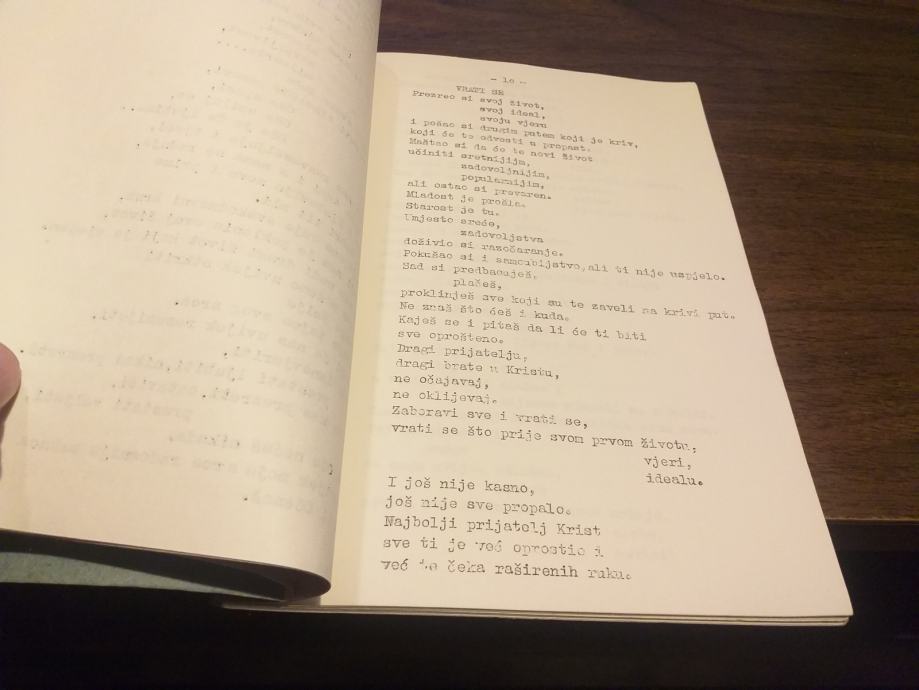 - 10 -
VRATI SE
Prezreo si svoj život,
svoj ideal,
svoju vjeru
i pošao si drugim putem koji je kriv,
koji će te odvesti u propast.
Maštao si da će te novi život
učiniti sretnijim,
zadovoljnijim,
popularnijim,
ali ostao si prevaren.
Mladost je prošla.
Starost je tu.
Umjesto sreće,
zadovoljstva
doživio si razočaranje.
Pokušao si i samoubijstvo,ali ti nije uspjelo.
Sad si predbacuješ,
plačeš,
proklinješ sve koji su te zaveli na krivi put.
Ne znaš što ćeš i kuda.
Kaješ se i pitaš da li će ti biti
sve oprošteno.
Dragi prijatelju,
dragi brate u Kristu,
ne očajavaj,
ne oklijevaj.
Zaboravi sve i vrati se,
vrati se što prije svom prvom životu,
vjeri,
idealu.
I još nije kasno,
još nije sve propalo.
Najbolji prijatelj Krist
sve ti je već oprostio i
već te čeka raširenih ruku.